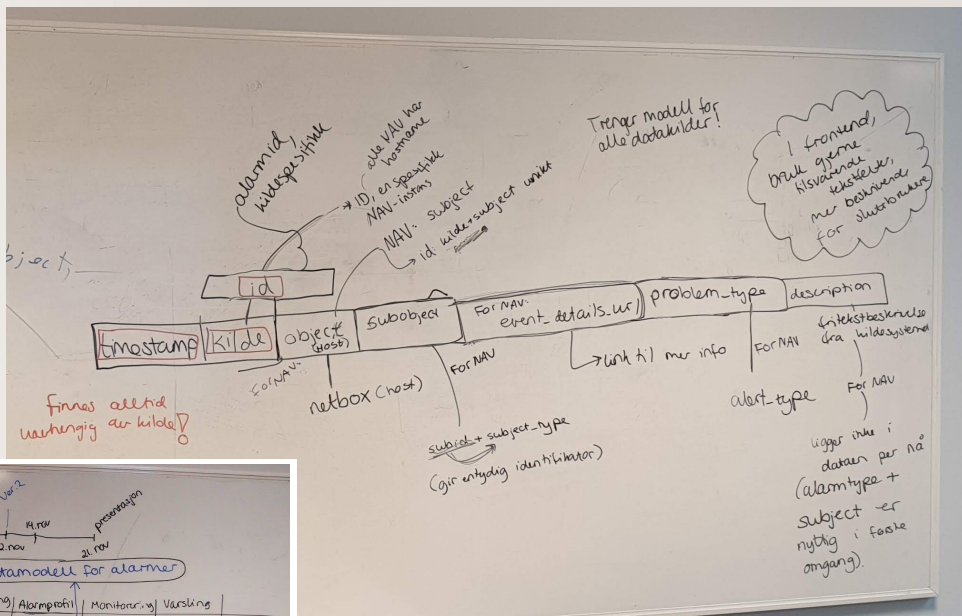 alarmid,
kildespesifikk
alle NAV har
hostname
ID, en spesifikk
NAV-instans
NAV: subject
id: kilde+subject unikt
Trenger modell for
alle datakilder!
I frontend,
bruk gjerne
tilsvarende
tekstfelter,
mer beskrivende
for sluttbrukere
bject,
id
timestamp
kilde
object
(HOST)
subobject
For NAV:
event_details_url
problem_type
description
For NAV:
netbox (host)
For NAV
subid + subject_type
(gir entydig identifikator)
link til mer info
For NAV
alert_type
fritekstbeskrivelse
fra kildesystemet
For NAV
ligger ikke i
dataen per nå
(alarmtype +
subject er
nyttig i første
omgang).
finnes alltid
uavhengig av kilde!
ver.2
14.nov
2.nov
21.nov
presentasjon
tamodell for alarmer
ng
Alarmprofil
Monitorering
Varsling